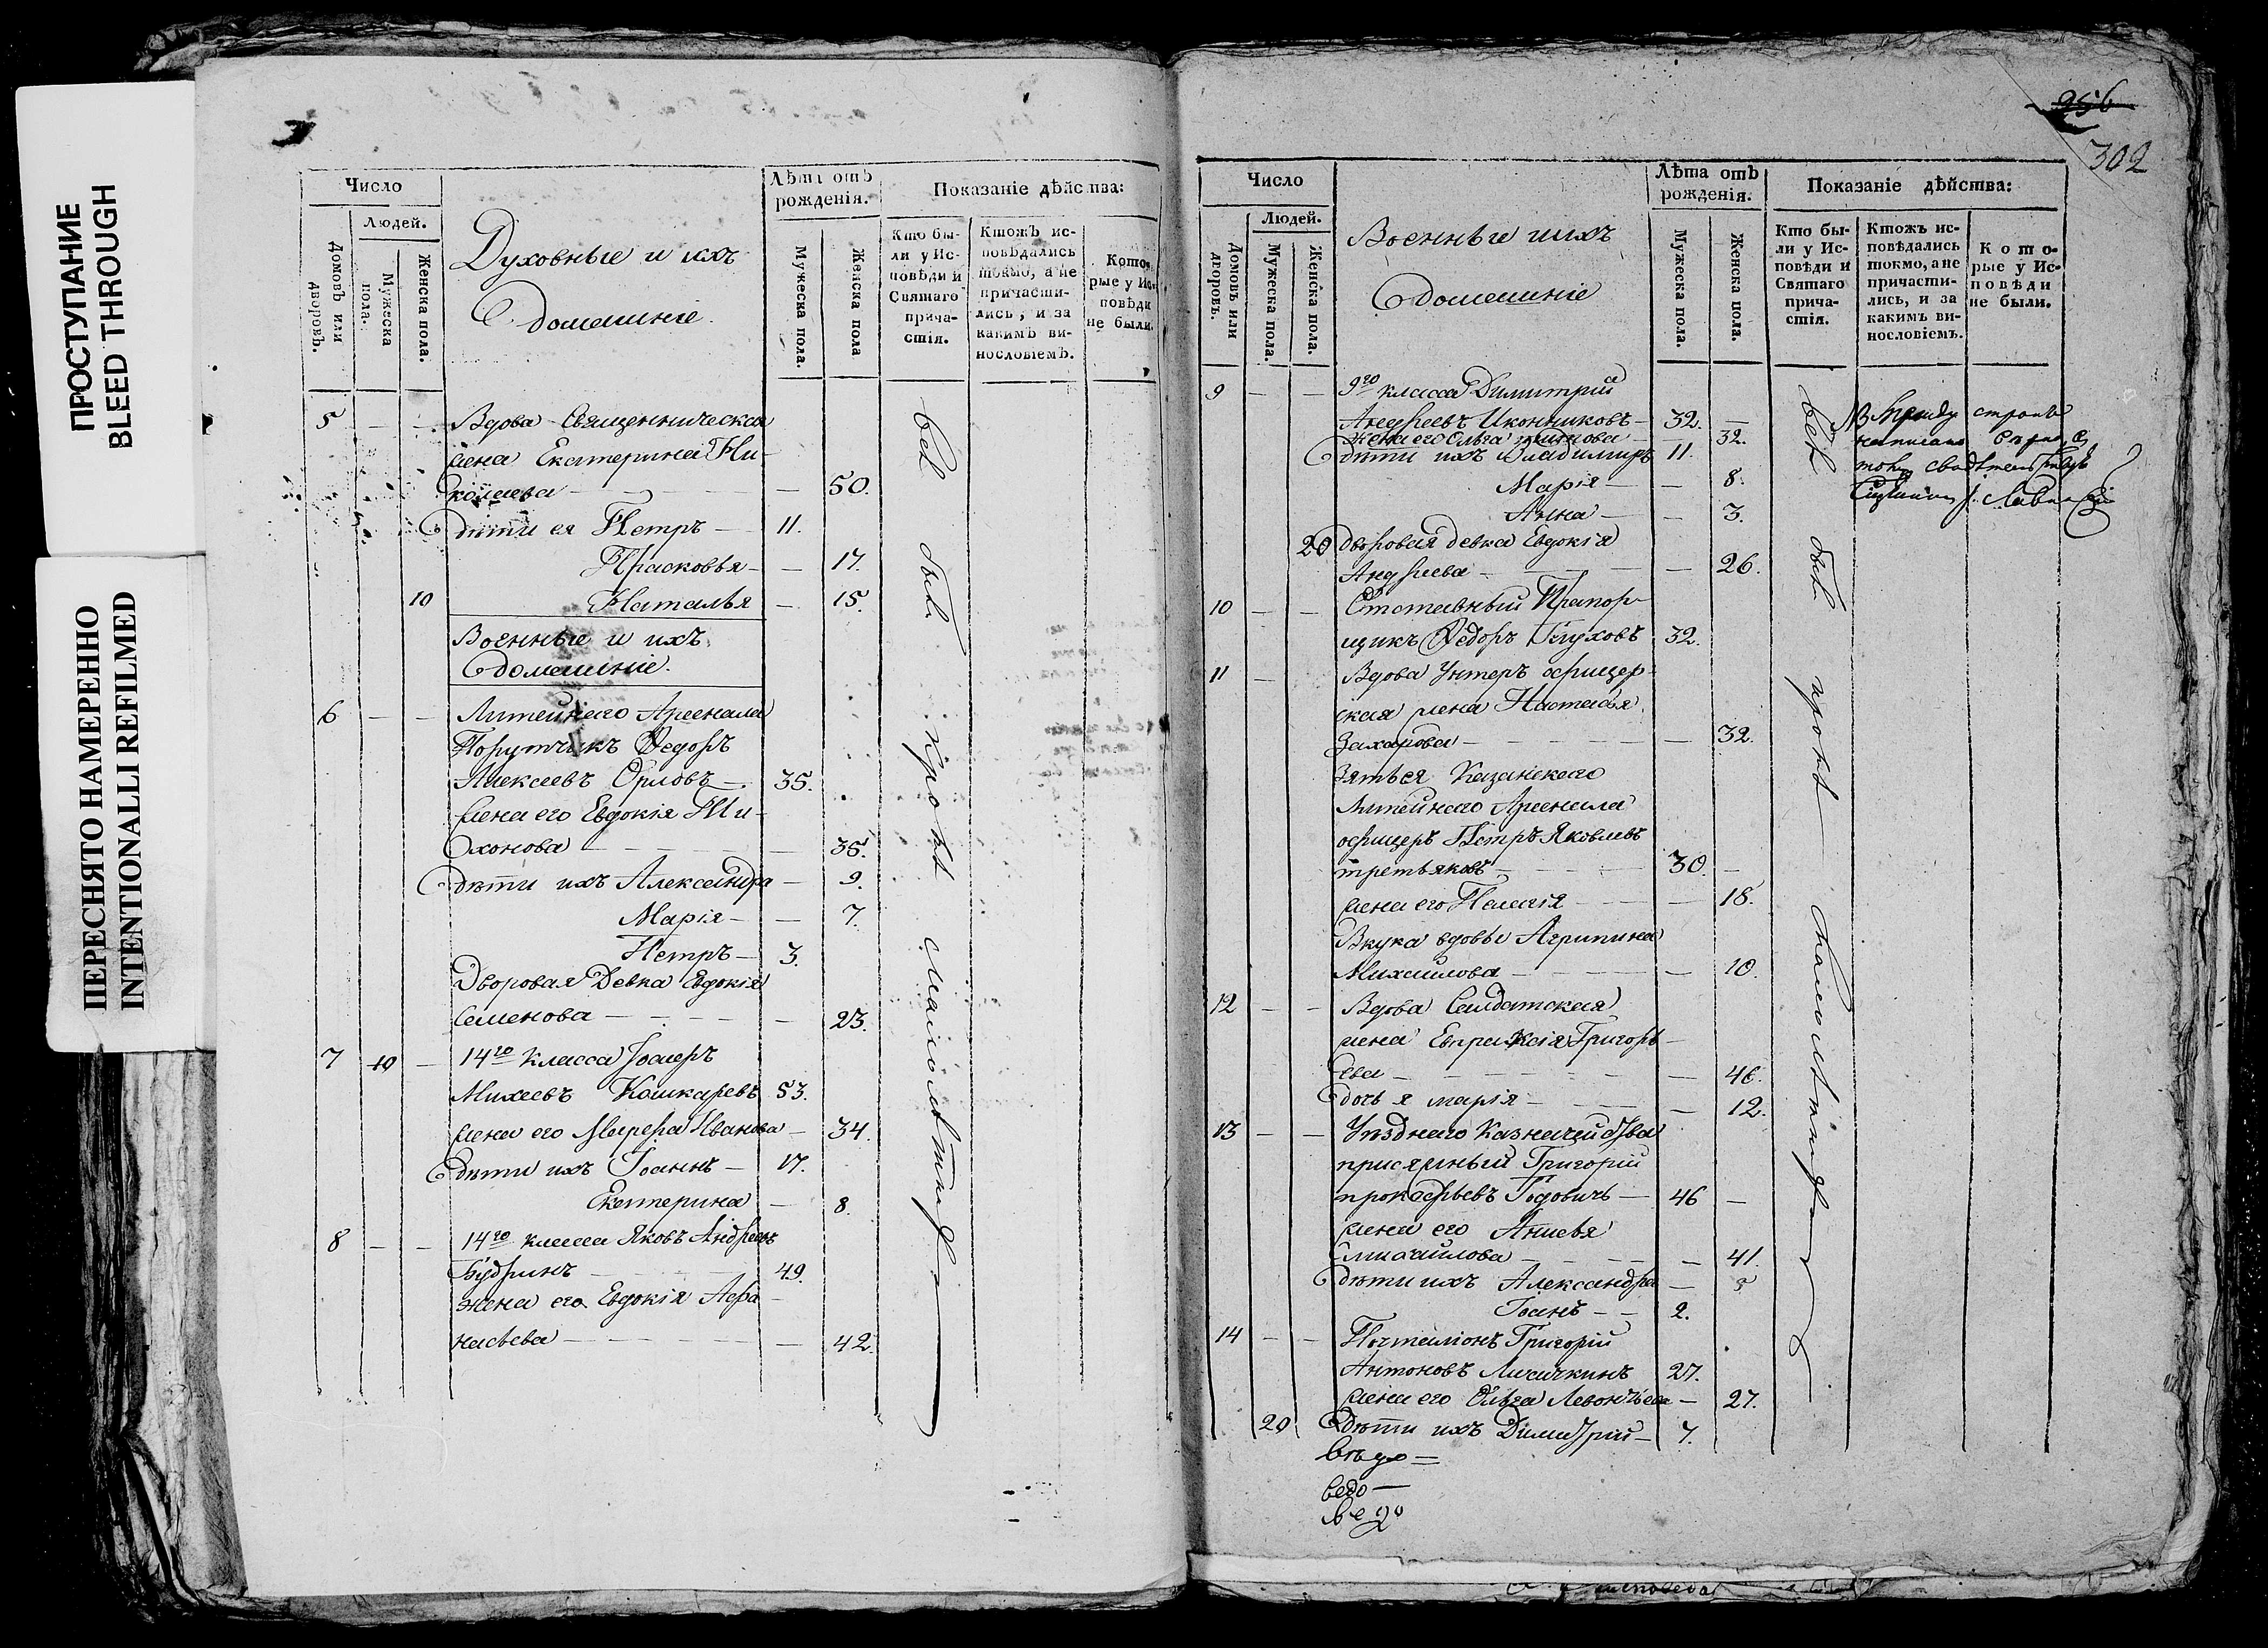 ПРОСТУПАНИЕ
BLEED THROUGH
ПЕРЕСНЯТО НАМЕРЕННО
INTENTIONALLI REFILMED
Число
Людей.
Домовъ или дворовъ.
Мужеска пола.
Женска пола.
Духовные и ихъ
домашніе.
Лѣта отъ
рожденія.
Мужеска пола.
Женска пола
Показаніе дѣйства:
Кто бы-
ли у Ис-
повѣди и
Святаго
прича-
стія.
Ктожъ ис-
повѣдались
токмо, а не
причасти-
лись, и за
какимъ ви-
нословіемъ.
Кото-
рые у Ис-
повѣди
не были.
5 — — Вдова Священническая
жена Екатерина Ни-
колаева — 50.
дѣти ея Петръ — 11.
Прасковья — — 17.
10 Наталья — 15.
Военные и ихъ
домашніе.
6 — — Литейнаго Арсенала
Порутчикъ Ѳедоръ
Алексеевъ Орловъ — 35.
жена его Евдокія Ти-
хонова — 35.
дѣти ихъ Александра — 9.
Марія — — 7.
Петръ — 3.
Дворовая Девка Евдокія
Семенова — — 23.
7 10 — 14го Класса
Михеевъ Кашкаревъ 53.
жена его Марѳа Иванова — 34.
дѣти ихъ Іоаннъ — 17.
Екатерина — 8.
8 — — 14го класса Яковъ Андреевъ
Будринъ — 49.
жена его Евдокія Афа-
насьева — — 42.
всѣ были кромѣ малолѣтныхъ
256
302
Число
Людей.
Домовъ или дворовъ.
Мужеска пола.
Женска пола.
Военные и ихъ
домашніе
Лѣта отъ
рожденія.
Мужеска пола.
Женска пола.
Показаніе дѣйства:
Кто бы-
ли у Ис-
повѣди и
Святаго
прича-
стія.
Ктожъ ис-
повѣдались
токмо, а не
причасти-
лись, и за
какимъ ви-
нословіемъ.
Кото-
рые у Ис-
повѣди
не были.
9 — — 9го класса Димитрій
Андреевъ Иконниковъ — 32. —
жена его Ольга — 32.
дѣти ихъ Владимиръ 11.
Марія — — 8.
Анна — — 3.
20 дворовая девка Евдокія
Андреева — — 26.
10 — — Отставный Прапор-
щикъ Ѳедоръ Глуховъ 32.
11 — Вдова Унтеръ офицер-
ская жена Настасья
Захарова — — 32.
Зятъ ея Казанскаго
Литейнаго Арсенала
офицеръ Петръ Яковлевъ
третьяковъ — 30. —
жена его Пелагія — — 18.
Внука вдовы Агрипина
Михайлова — — 10.
12 — — Вдова Салдатская
жена Евпраксія Григорь-
ева — — 46.
дочь я марія — — 12.
13 — — Уѣзднаго Казначейства
присяжный Григорій
прокофьевъ — 46 —
жена его Анисья
михайлова — — 41.
дѣти ихъ Александра — 5
Іоанъ — — 2.
14 — — Почталіонъ Григорій
Антоновъ Лисичкинъ 27.
жена его Ольга Левонтьева — 27.
20 дѣти ихъ Димитрій — 7.
ведо —
всѣ были кромѣ малолѣтныхъ